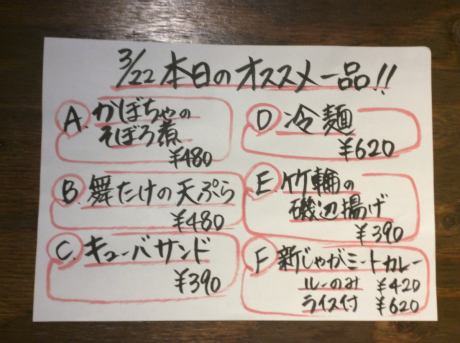 3/22 本日のオススメ一品!!
A. かぼちゃの
そぼろ煮
¥480
B. 舞たけの天ぷら
¥480
C. キューバサンド
¥390
D 冷麺
¥620
E. 竹輪の
磯辺揚げ
¥390
F 新じゃがミートカレー
ルーのみ ¥420
ライス付 ¥620